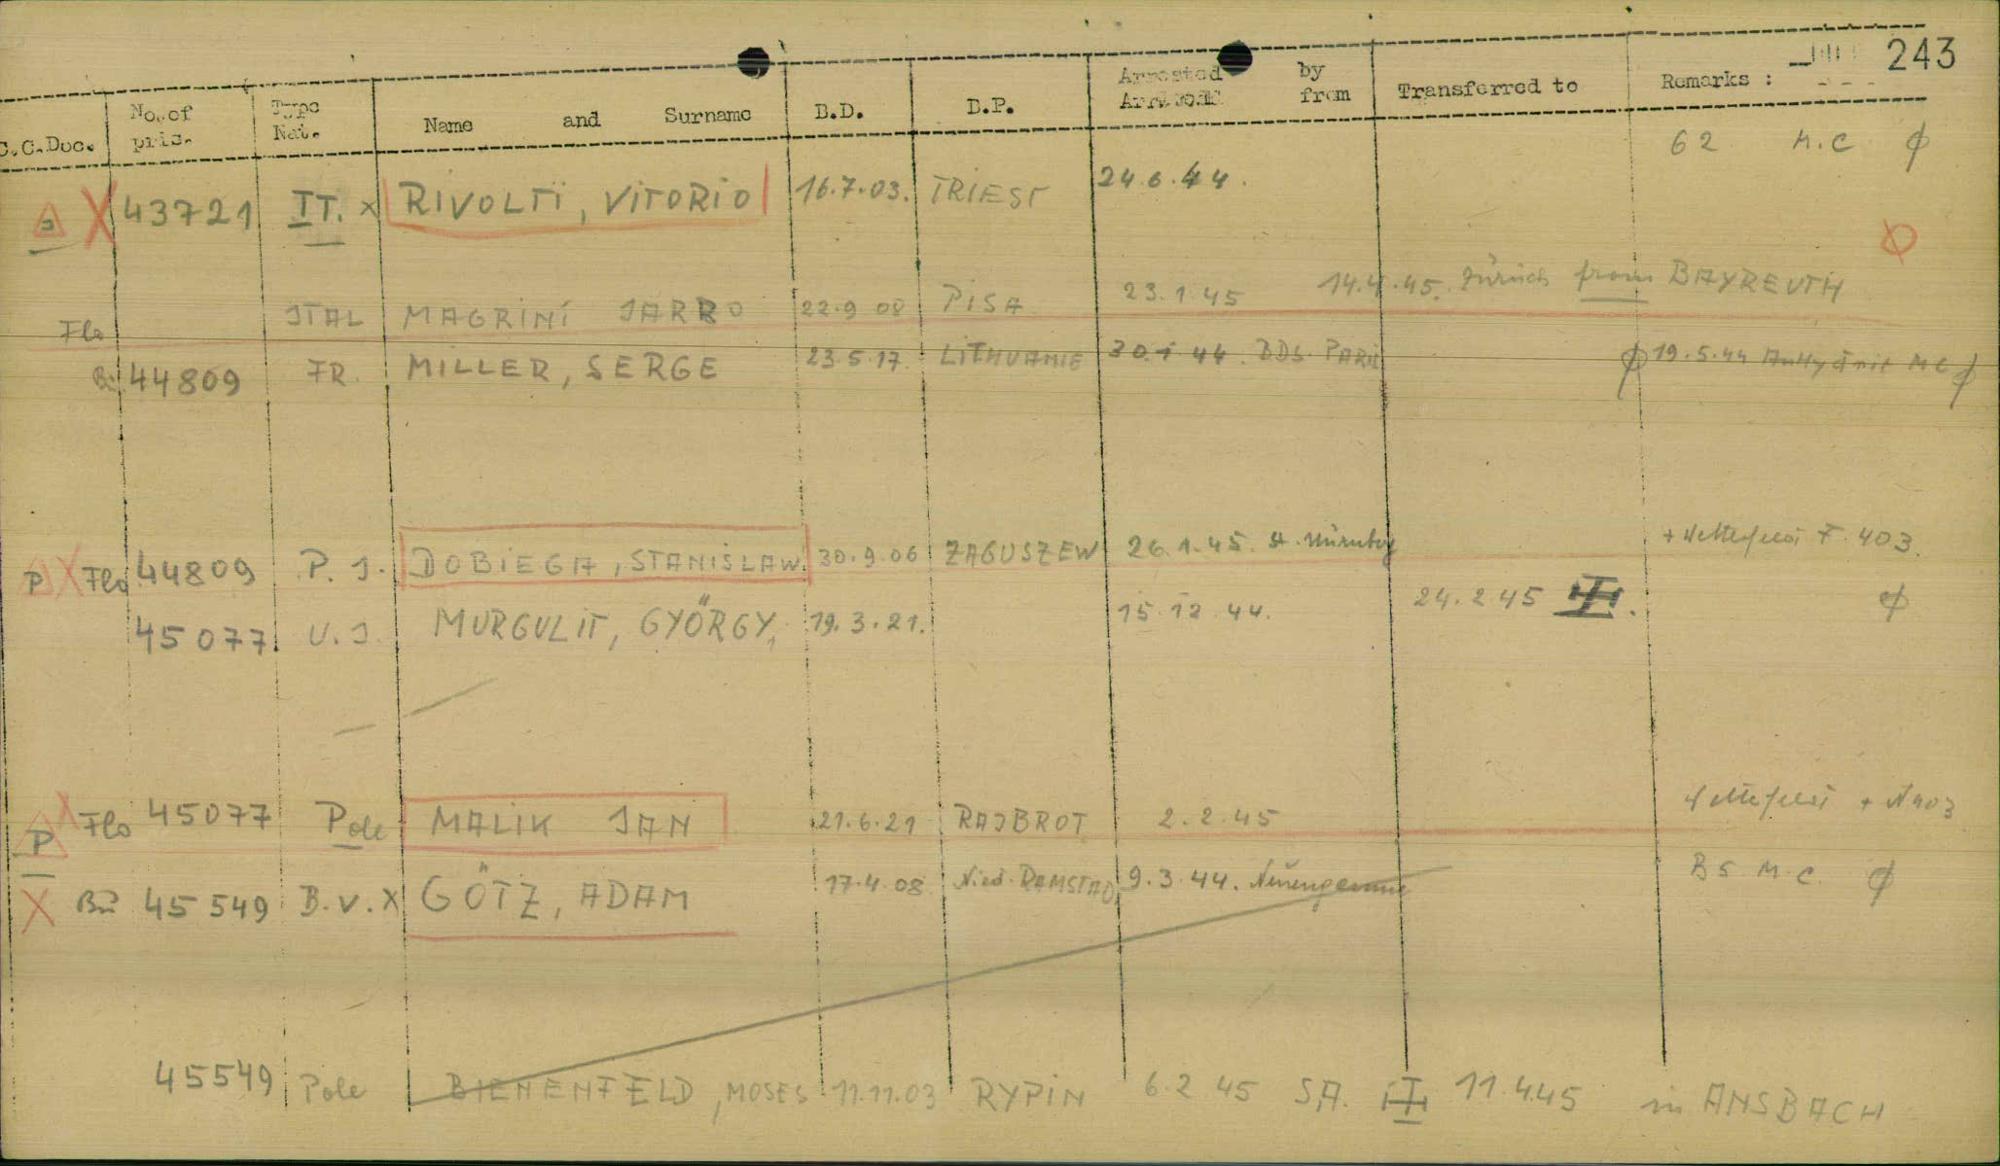 243
C.C.Doc. No. of pris. Type Nat. Name and Surname B.D. B.P. Arrested by from Transferred to Remarks :
62 M.C
43721 IT. x RIVOLTI, VITORIO 16.7.03. TRIEST 24.6.44.
Flo ITAL MAGRINI JARRO 22.9 08 PISA 23.1.45 14.4.45. Zürich from BAYREUTH
Bu 44809 FR. MILLER, SERGE 23.5.17. LITHUANIE 30.1.44. BDS. PARIS 19.5.44 M C
P X Flo 44809 P. J. DOBIEGA, STANISLAW. 30.9.06 ZAGUSZEW 26.1.45. St. Nürnbg + F. 403.
45077. U. J. MURGULIT, GYÖRGY, 19.3.21. 15.12.44. 24.2 45
P X Flo 45077 Pole MALIK JAN 21.6.21 RAJBROT 2.2.45 + N403
X Bu 45549 B.V. X GÖTZ, ADAM 17.4.08 Nied. RAMSTAD, 9.3.44. B5 M.C.
45549 Pole BIENENFELD, MOSES 11.11.03 RYPIN 6.2 45 SA. 11.4.45 in ANSBACH